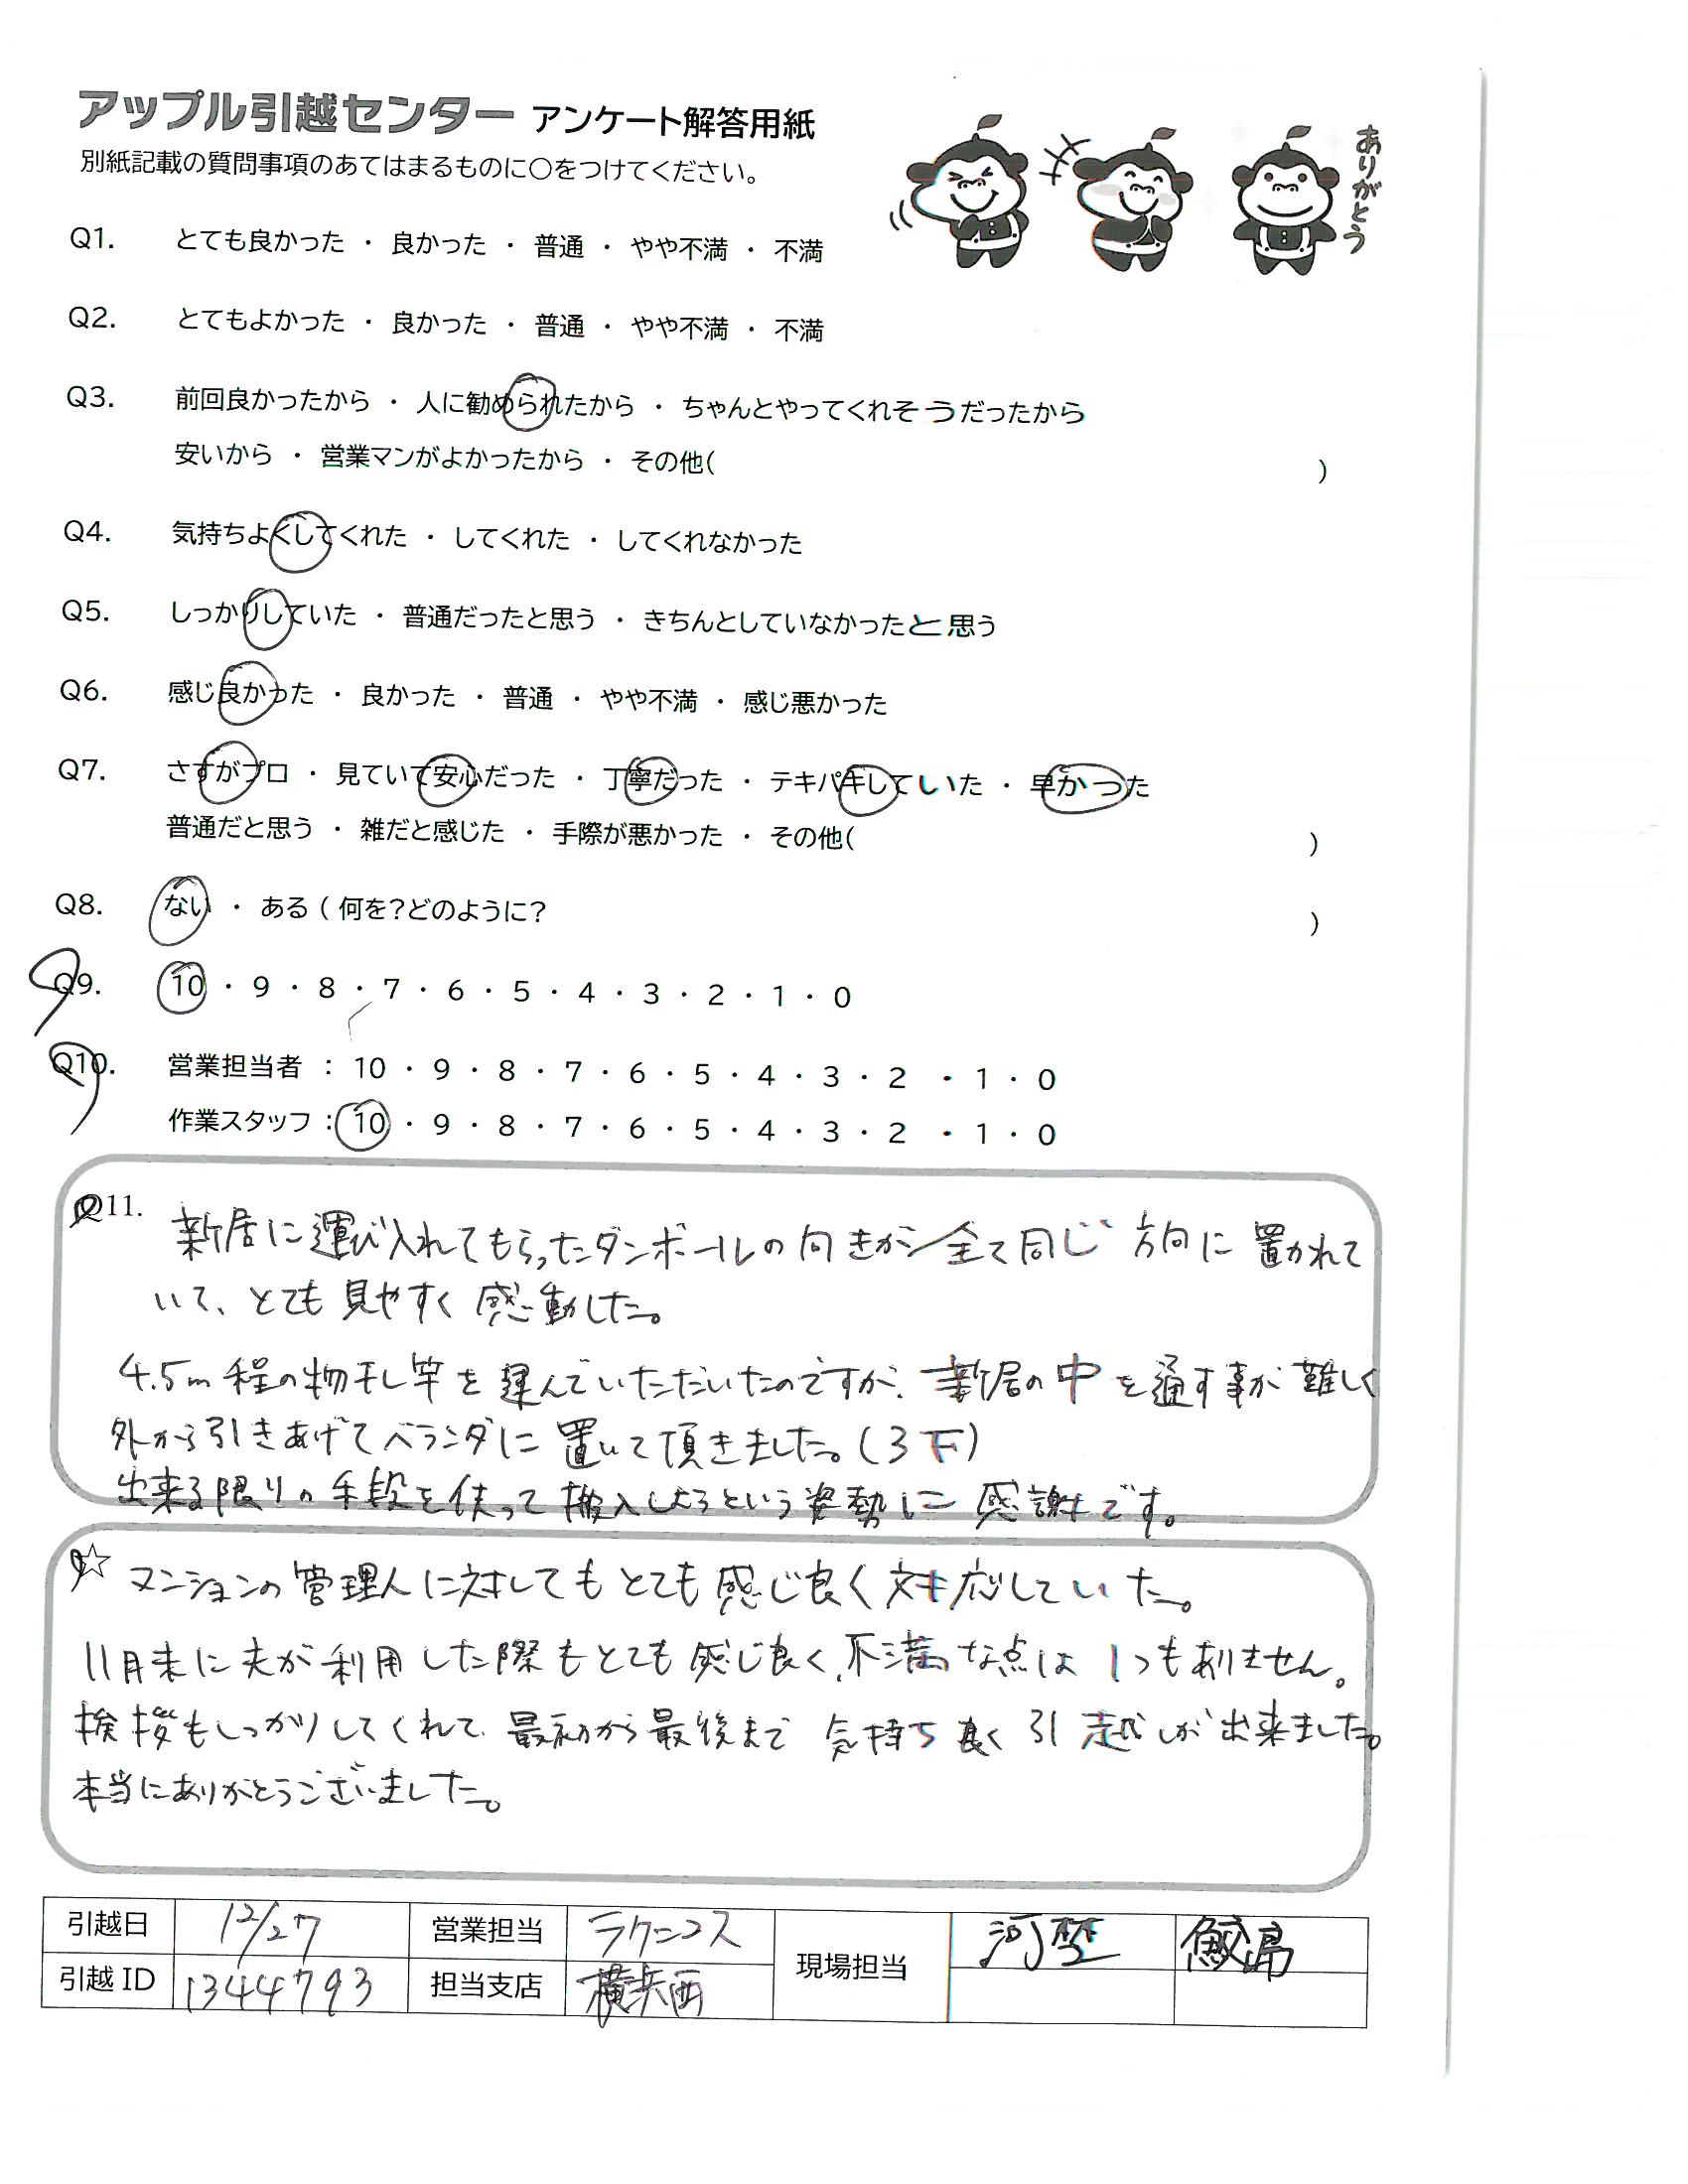 アップル引越センター アンケート解答用紙
別紙記載の質問事項のあてはまるものに○をつけてください。
ありがとう
Q1. とても良かった ・ 良かった ・ 普通 ・ やや不満 ・ 不満
Q2. とてもよかった ・ 良かった ・ 普通 ・ やや不満 ・ 不満
Q3. 前回良かったから ・ 人に勧められたから ・ ちゃんとやってくれそうだったから
安いから ・ 営業マンがよかったから ・ その他( )
Q4. 気持ちよくしてくれた ・ してくれた ・ してくれなかった
Q5. しっかりしていた ・ 普通だったと思う ・ きちんとしていなかったと思う
Q6. 感じ良かった ・ 良かった ・ 普通 ・ やや不満 ・ 感じ悪かった
Q7. さすがプロ ・ 見ていて安心だった ・ 丁寧だった ・ テキパキしていた ・ 早かった
普通だと思う ・ 雑だと感じた ・ 手際が悪かった ・ その他( )
Q8. ない ・ ある ( 何を?どのように? )
Q9. 10 ・ 9 ・ 8 ・ 7 ・ 6 ・ 5 ・ 4 ・ 3 ・ 2 ・ 1 ・ 0
Q10. 営業担当者 : 10 ・ 9 ・ 8 ・ 7 ・ 6 ・ 5 ・ 4 ・ 3 ・ 2 ・ 1 ・ 0
作業スタッフ : 10 ・ 9 ・ 8 ・ 7 ・ 6 ・ 5 ・ 4 ・ 3 ・ 2 ・ 1 ・ 0
Q11. 新居に運び入れてもらったダンボールの向きが全て同じ方向に置かれて
いて、とても見やすく感動した。
4.5m程の物干し竿を運んでいただいたのですが、新居の中を通す事が難しく
外から引きあげてベランダに置いて頂きました。(3F)
出来る限りの手段を使って搬入しようという姿勢に感謝です。
☆ マンションの管理人に対してもとても感じ良く対応していた。
11月末に夫が利用した際もとても感じ良く、不満な点は1つもありません。
挨拶もしっかりしてくれて、最初から最後まで気持ち良く引越しが出来ました。
本当にありがとうございました。
引越日 12/27 営業担当 ラクニコス 現場担当 鮫島
引越 ID 1344793 担当支店 横浜西